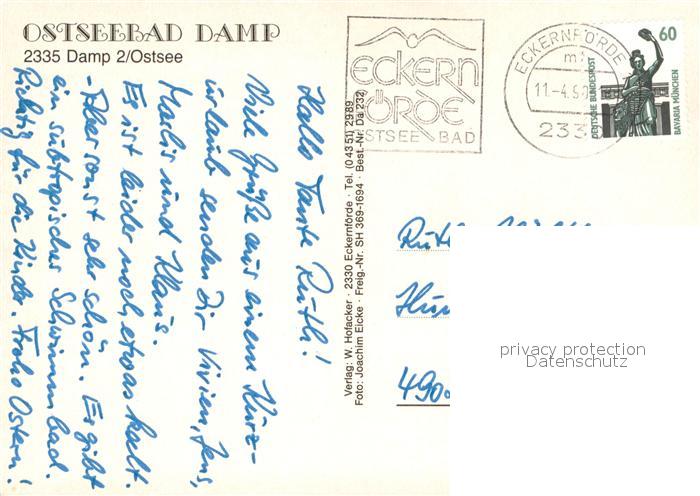 OSTSEEBAD DAMP
2335 Damp 2/Ostsee
Hallo Tante Ruth!
Viele Grüße aus einem Kurz-
urlaub senden Dir Vivien, Jens,
Marlis und Klaus.
Es ist leider noch etwas kalt.
- Aber sonst sehr schön. Es gibt
ein subtropisches Schwimmbad.
Richtig für die Kinder. Frohe Ostern!
Verlag: W. Hofacker · 2330 Eckernförde · Tel. (0 43 51) 29 89
Foto: Joachim Eicke · Freig.-Nr. SH 369-1694 · Best.-Nr. Da 232
ECKERN
FÖRDE
OSTSEE BAD
ECKERNFÖRDE
11.-4.
233
60
DEUTSCHE BUNDESPOST
BAVARIA MÜNCHEN
490
privacy protection
Datenschutz